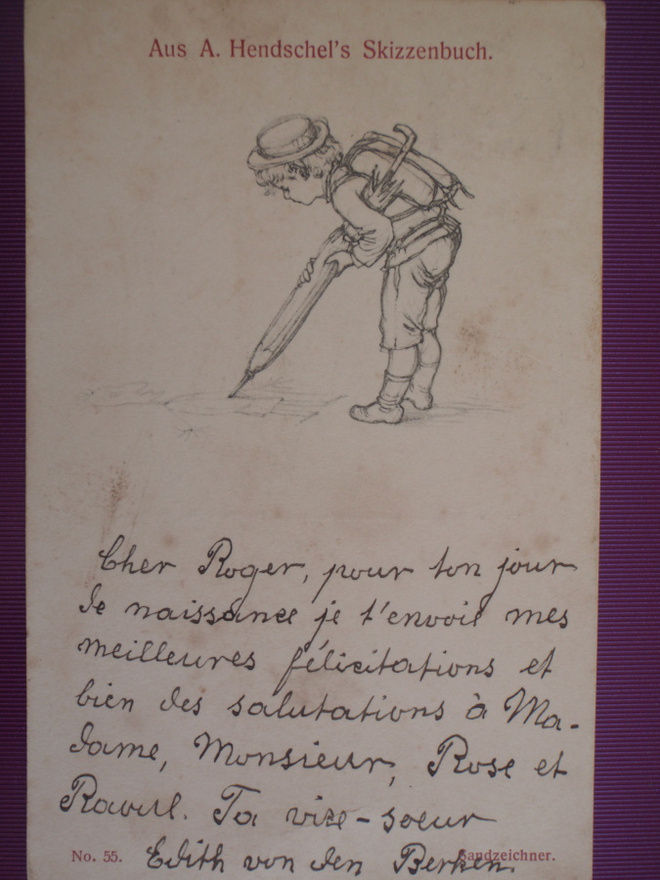 Aus A. Hendschel's Skizzenbuch.
Cher Roger, pour ton jour
de naissance je t'envoie mes
meilleures félicitations et
bien des salutations à Ma-
dame, Monsieur, Rose et
Raoul. Ta vize-soeur
Edith von den Berken.
No. 55.
Sandzeichner.